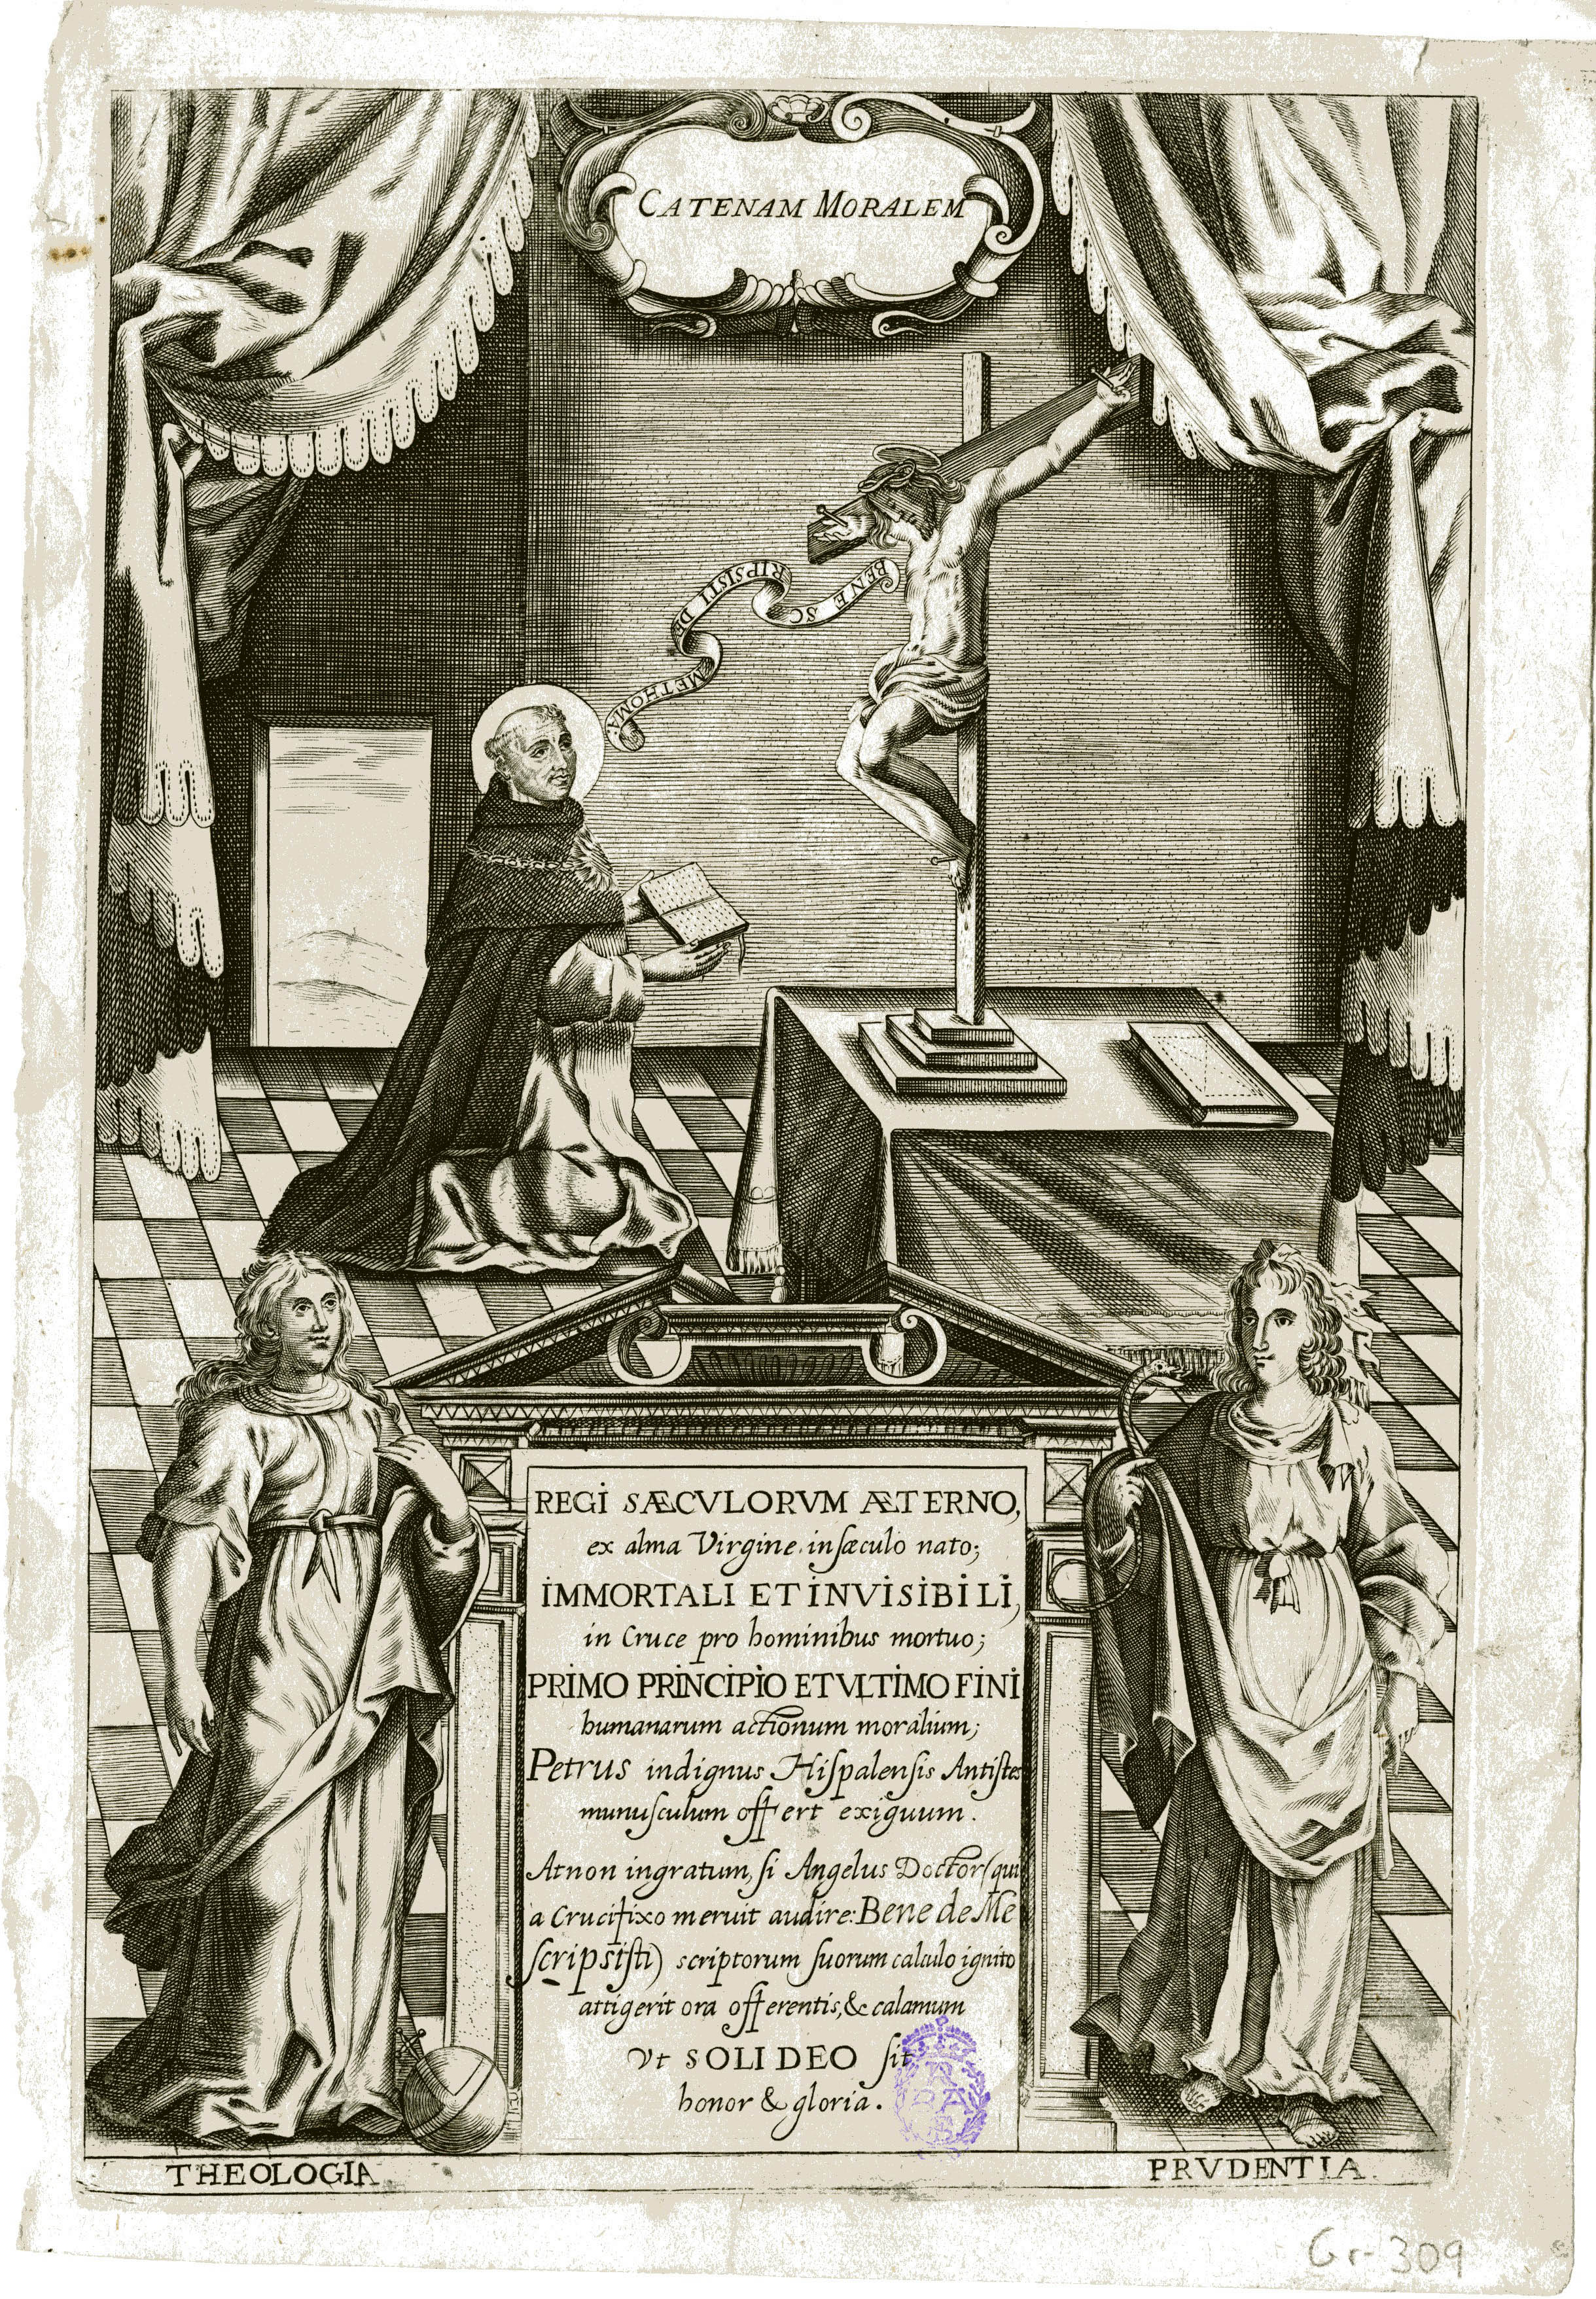 CATENAM MORALEM
BENE SC
RIPSISTI DE
ME THOMA.
REGI SÆCVLORVM ÆTERNO,
ex alma Virgine in ſæculo nato;
IMMORTALI ET INVISIBILI,
in Cruce pro hominibus mortuo;
PRIMO PRINCIPIO ET VLTIMO FINI
humanarum actionum moralium;
Petrus indignus Hiſpalenſis Antiſtes
munuſculum offert exiguum.
At non ingratum, ſi Angelus Doctor (qui
a Crucifixo meruit audire: Bene de Me
ſcripsiſti) scriptorum ſuorum calculo ignito
attigerit ora offerentis, & calamum
Vt SOLI DEO ſit
honor & gloria.
THEOLOGIA
PRVDENTIA.
Gr-309